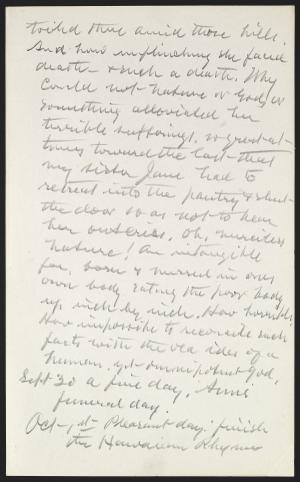 toiled there amid those hills.
And how unflinching she faced
death - & such a death. Why
could not Nature or God, or
something alleviated her
terrible sufferings, so great at
times toward the last - that
my sister Jane had to
retreat into the pantry & shut
the door so as not to hear
her outcries. Oh, merciless
Nature! An intangible
foe, born & nursed in ones
own body eating the poor body
up, inch by inch. How horrible,
How impossible to reconcile such
facts with the old idea of a
human, yet omnipotent God,
Sept 30 a fine day,
funeral day.
Oct - 1st Pleasant day. finish
the Hawaiian Rhymes